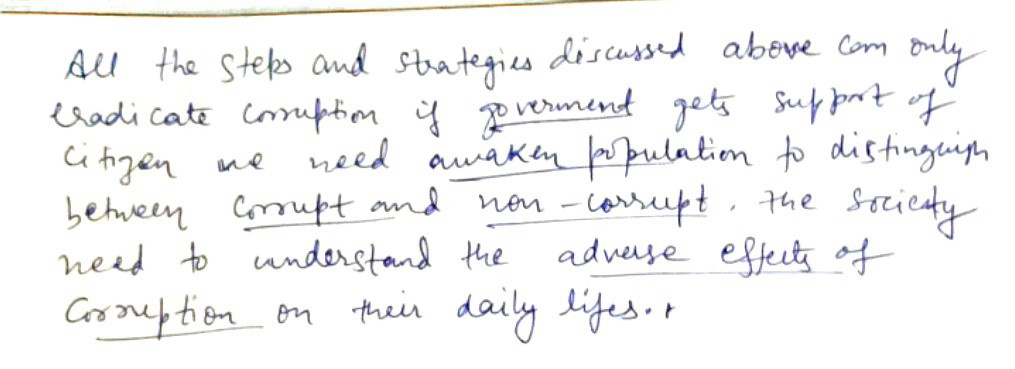 All the steps and strategies discussed above can only
eradicate corruption if goverment gets support of
citizen we need awaken population to distinguish
between corrupt and non-corrupt. The Socieaty
need to understand the adverse effects of
Corruption on their daily lifes.